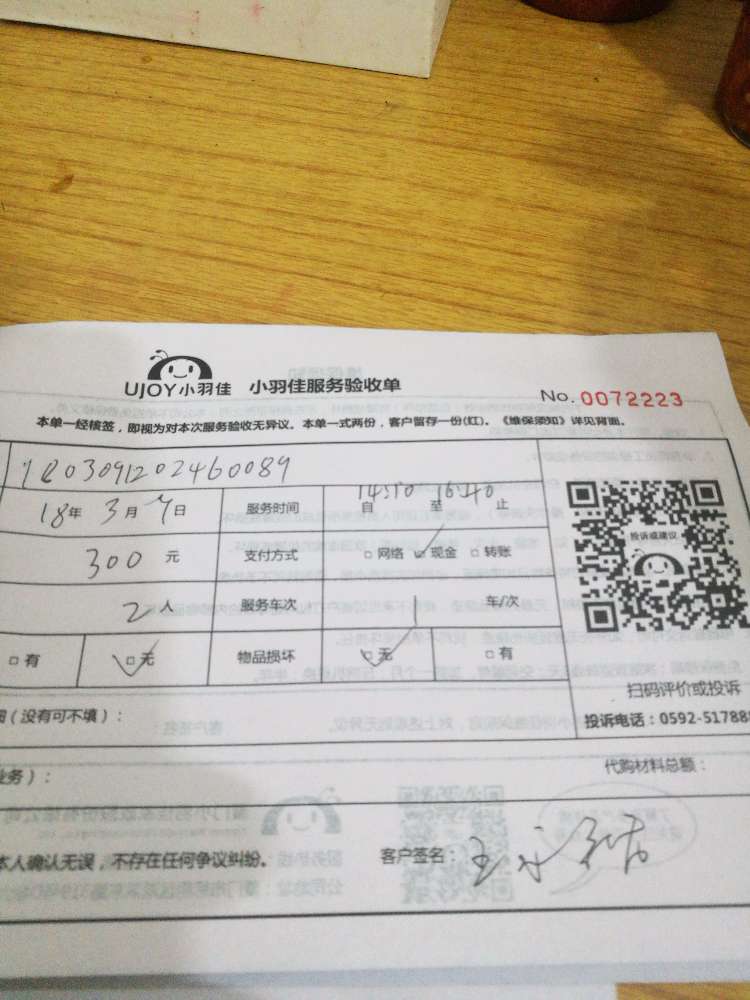 UJOY小羽佳 小羽佳服务验收单
No. 0072223
本单一经核签，即视为对本次服务验收无异议。本单一式两份，客户留存一份(红)。《维保须知》详见背面。
180309120246 0089
18年 3月 7日 服务时间 14:10 16:40
自 至 止
300 元 支付方式 □网络 ☑现金 □转账
2人 服务车次 1 车/次
□有 ☑无 物品损坏 ☑无 □有
投诉或建议
扫码评价或投诉
（没有可不填）：
投诉电话：0592-517888
业务）：
代购材料总额：
本人确认无误，不存在任何争议纠纷。
客户签名：王永